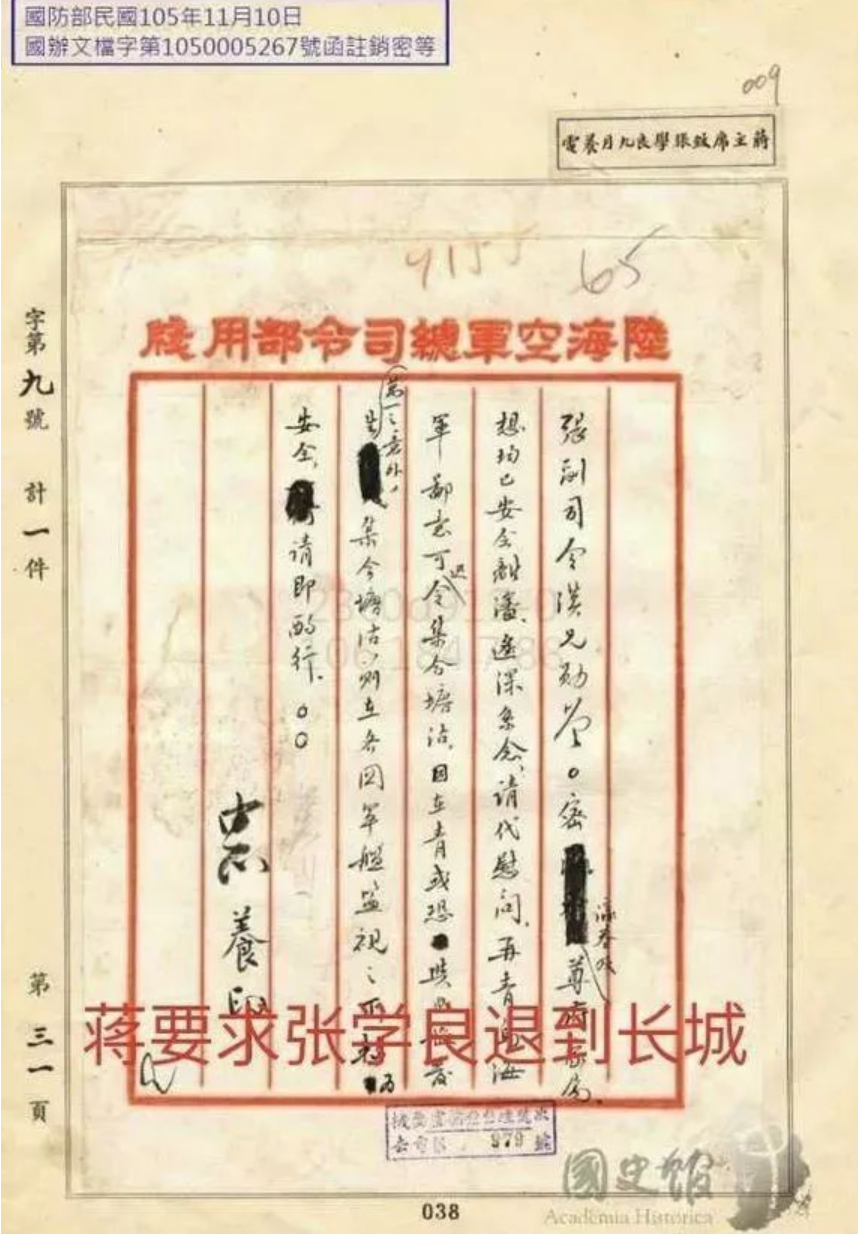 國防部民國105年11月10日
國辦文檔字第1050005267號函註銷密等
009
蔣主席致張學良九月養電
9155
65
陸海空軍總司令部用牋
張副司令漢兄勛鑒。密
尊府家屬
想均已安全離瀋、遙深系念、請代慰問、再青島海
軍鄙意可速令集合塘沽、因在青或恐
第一之意外，
集合塘沽，則在各國軍艦監視之
安全、請即酌行、○○
中正養印
字第九號 計一件
第三一頁
蒋要求张学良退到长城
979
038
國史館
Academia Historica